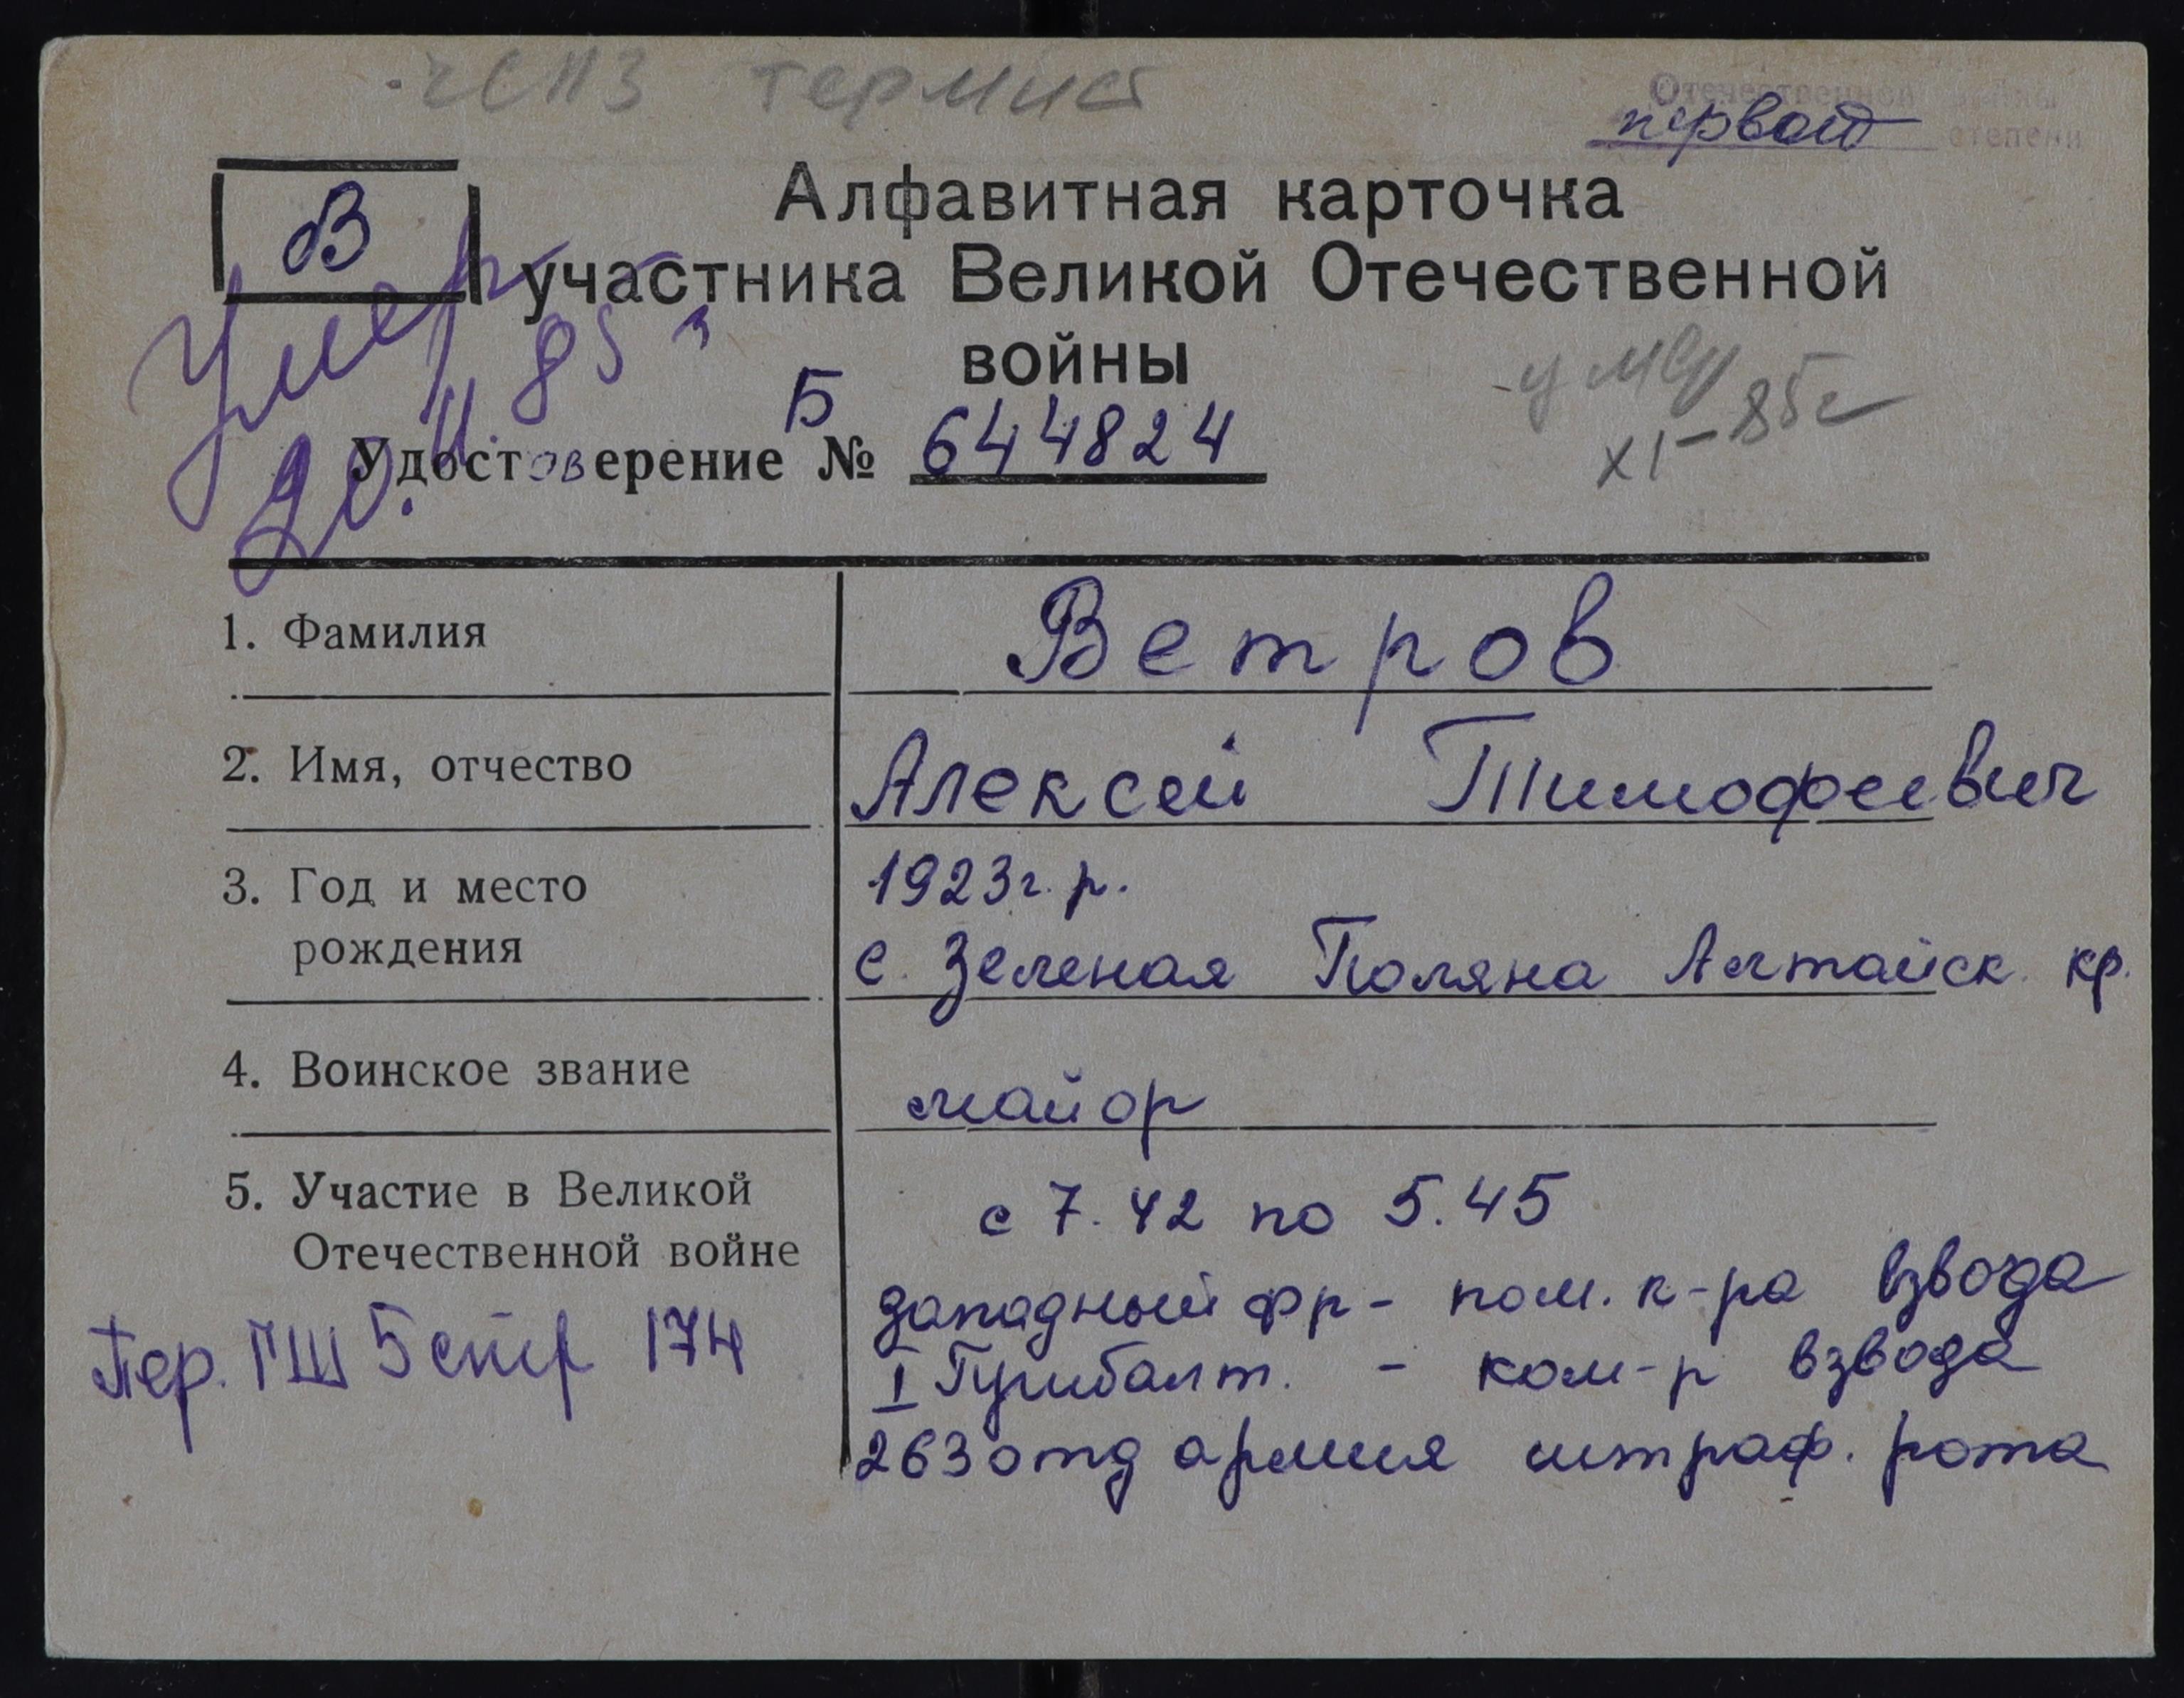 ЧСПЗ термист
Отечественной войны
первой степени
В
Алфавитная карточка
участника Великой Отечественной
войны
Умер
20.11.85 г
умер
XI-85г
Б
Удостоверение № 644824
1. Фамилия Ветров
2. Имя, отчество Алексей Тимофеевич
3. Год и место 1923г.р.
рождения с. Зеленая Поляна Алтайск. кр.
4. Воинское звание майор
5. Участие в Великой с 7.42 по 5.45
Отечественной войне
западный фр - пом. к-ра взвода
Пер. ГШ 5 стр 174 I Прибалт. - ком-р взвода
263 отд армия штраф. рота